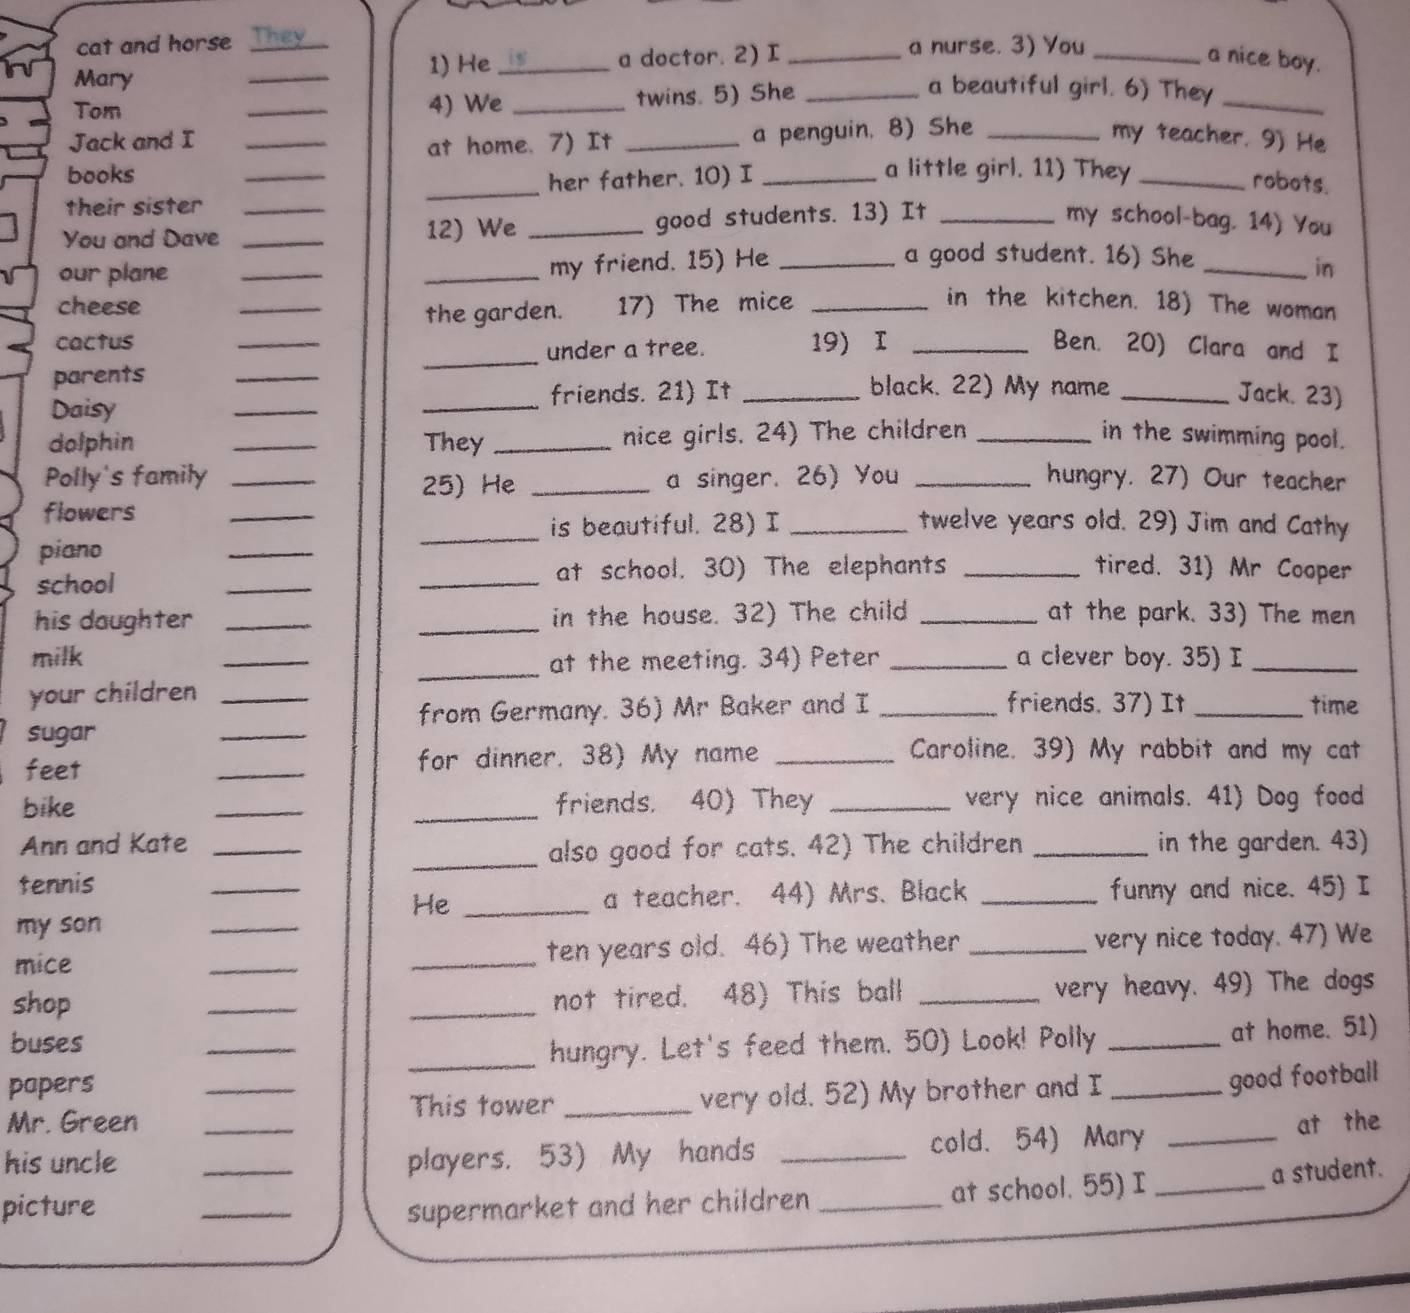 cat and horse They
Mary ______
Tom ______
Jack and I ______
books ______
their sister ______
You and Dave ______
our plane ______
cheese ______
cactus ______
parents ______
Daisy ______
dolphin ______
Polly's family ______
flowers ______
piano ______
school ______
his daughter ______
milk ______
your children ______
sugar ______
feet ______
bike ______
Ann and Kate ______
tennis ______
my son ______
mice ______
shop ______
buses ______
papers ______
Mr. Green ______
his uncle ______
picture ______
1) He is a doctor. 2) I ______ a nurse. 3) You ______ a nice boy.
4) We ______ twins. 5) She ______ a beautiful girl. 6) They ______
at home. 7) It ______ a penguin. 8) She ______ my teacher. 9) He
______ her father. 10) I ______ a little girl. 11) They ______ robots.
12) We ______ good students. 13) It ______ my school-bag. 14) You
______ my friend. 15) He ______ a good student. 16) She ______ in
the garden. 17) The mice ______ in the kitchen. 18) The woman
______ under a tree. 19) I ______ Ben. 20) Clara and I
______ friends. 21) It ______ black. 22) My name ______ Jack. 23)
They ______ nice girls. 24) The children ______ in the swimming pool.
25) He ______ a singer. 26) You ______ hungry. 27) Our teacher
______ is beautiful. 28) I ______ twelve years old. 29) Jim and Cathy
______ at school. 30) The elephants ______ tired. 31) Mr Cooper
______ in the house. 32) The child ______ at the park. 33) The men
______ at the meeting. 34) Peter ______ a clever boy. 35) I ______
from Germany. 36) Mr Baker and I ______ friends. 37) It ______ time
for dinner. 38) My name ______ Caroline. 39) My rabbit and my cat
______ friends. 40) They ______ very nice animals. 41) Dog food
______ also good for cats. 42) The children ______ in the garden. 43)
He ______ a teacher. 44) Mrs. Black ______ funny and nice. 45) I
______ ten years old. 46) The weather ______ very nice today. 47) We
______ not tired. 48) This ball ______ very heavy. 49) The dogs
______ hungry. Let's feed them. 50) Look! Polly ______ at home. 51)
This tower ______ very old. 52) My brother and I ______ good football
players. 53) My hands ______ cold. 54) Mary ______ at the
supermarket and her children ______ at school. 55) I ______ a student.